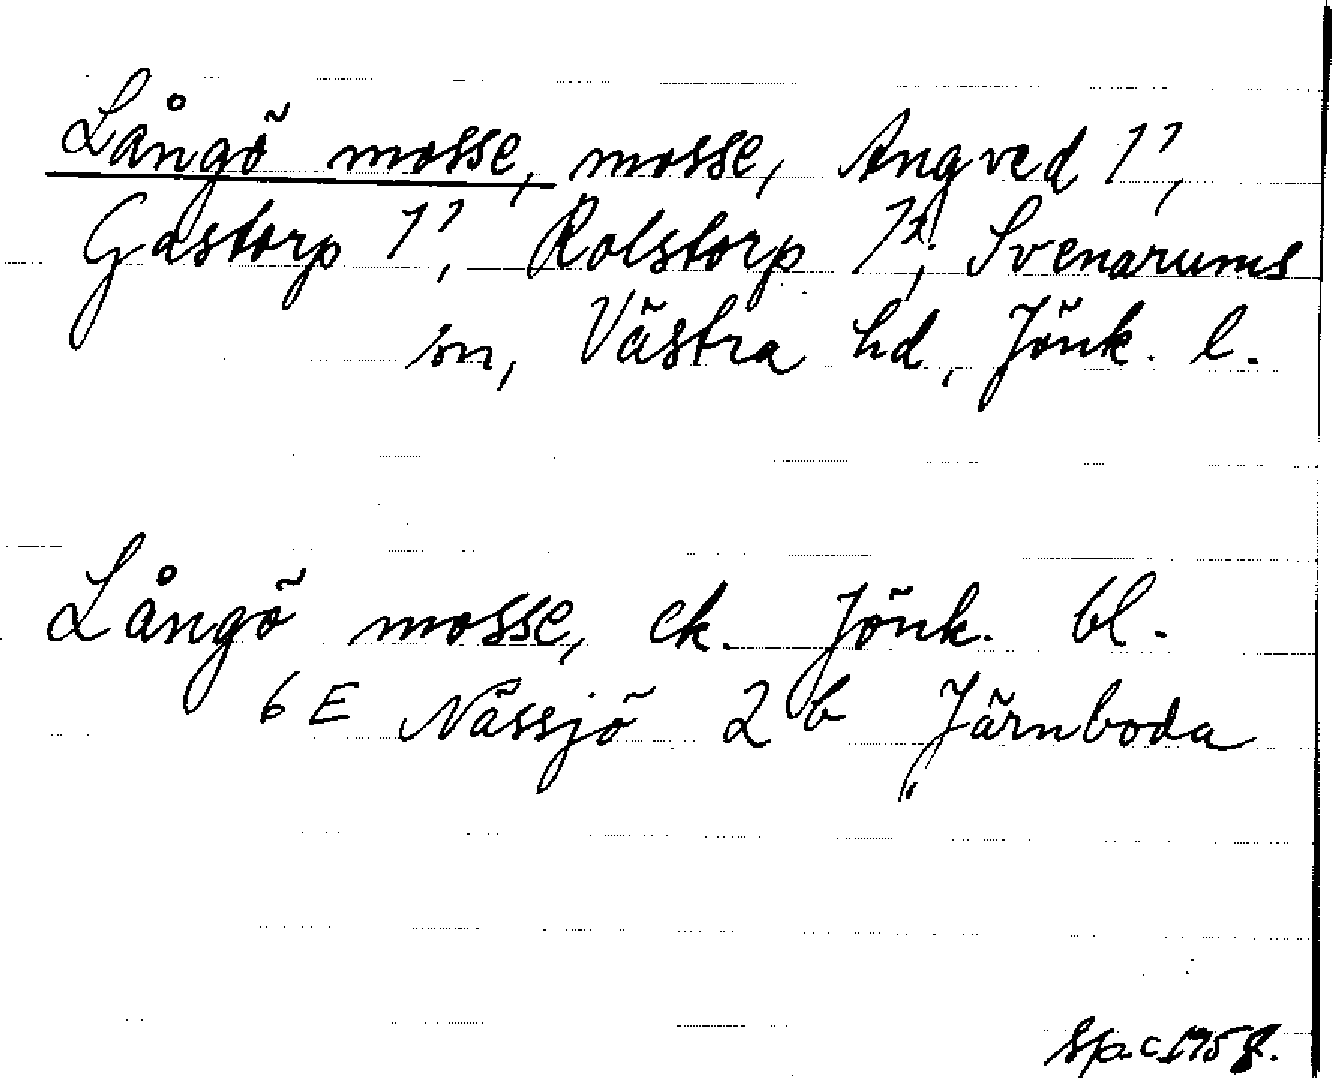 Långö mosse, mosse, Angved 1²,
Gastorp 1², Rolstorp 1², Svenarums
sn, Västra hd, Jönk. l.
Långö mosse, ek. Jönk. bl.
6 E Nässjö 2 b Järnboda
Sp.c. 1958.